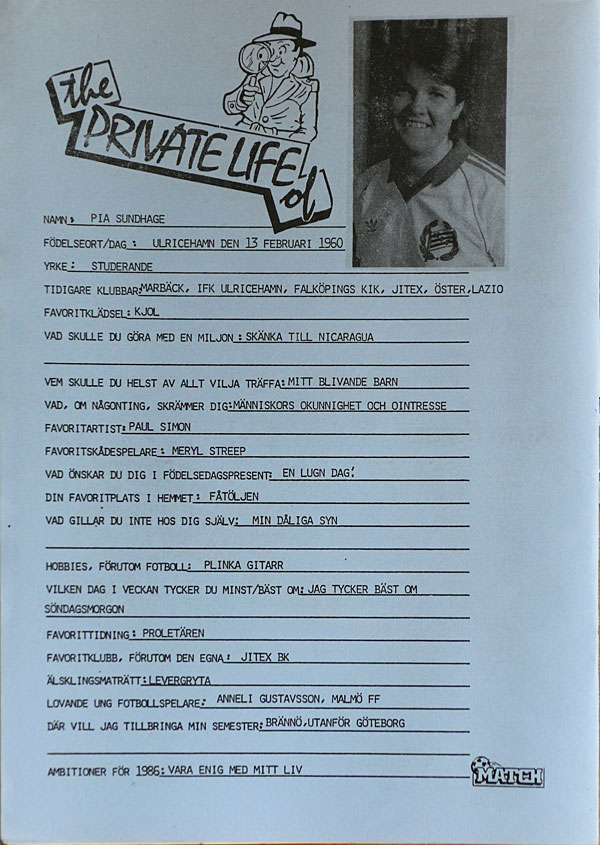 the
PRIVATE LIFE
of
NAMN: PIA SUNDHAGE
FÖDELSEORT/DAG: ULRICEHAMN DEN 13 FEBRUARI 1960
YRKE: STUDERANDE
TIDIGARE KLUBBAR: MARBÄCK, IFK ULRICEHAMN, FALKÖPINGS KIK, JITEX, ÖSTER, LAZIO
FAVORITKLÄDSEL: KJOL
VAD SKULLE DU GÖRA MED EN MILJON: SKÄNKA TILL NICARAGUA
VEM SKULLE DU HELST AV ALLT VILJA TRÄFFA: MITT BLIVANDE BARN
VAD, OM NÅGONTING, SKRÄMMER DIG: MÄNNISKORS OKUNNIGHET OCH OINTRESSE
FAVORITARTIST: PAUL SIMON
FAVORITSKÅDESPELARE: MERYL STREEP
VAD ÖNSKAR DU DIG I FÖDELSEDAGSPRESENT: EN LUGN DAG!
DIN FAVORITPLATS I HEMMET: FÅTÖLJEN
VAD GILLAR DU INTE HOS DIG SJÄLV: MIN DÅLIGA SYN
HOBBIES, FÖRUTOM FOTBOLL: PLINKA GITARR
VILKEN DAG I VECKAN TYCKER DU MINST/BÄST OM: JAG TYCKER BÄST OM
SÖNDAGSMORGON
FAVORITTIDNING: PROLETÄREN
FAVORITKLUBB, FÖRUTOM DEN EGNA: JITEX BK
ÄLSKLINGSMATRÄTT: LEVERGRYTA
LOVANDE UNG FOTBOLLSPELARE: ANNELI GUSTAVSSON, MALMÖ FF
DÄR VILL JAG TILLBRINGA MIN SEMESTER: BRÄNNÖ, UTANFÖR GÖTEBORG
AMBITIONER FÖR 1986: VARA ENIG MED MITT LIV
MATCH